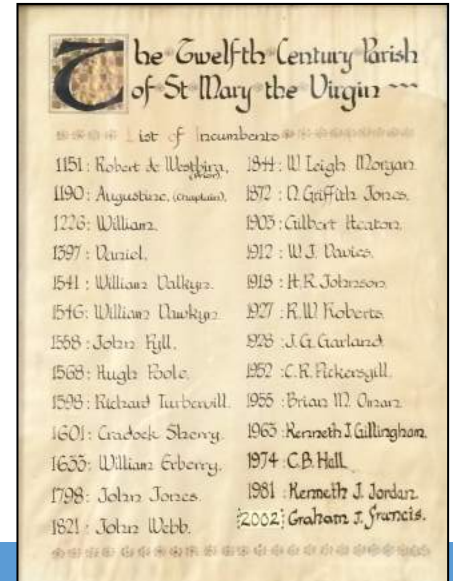 The Twelfth Century Parish
of St Mary the Virgin ~~~
List of Incumbents
1151: Robert de Westbira,
(Prior)
1190: Augustine, (chaplain),
1226: William,
1397: Daniel,
1541: William Dalkyn,
1546: William Dawkyn,
1558: John Kyll,
1568: Hugh Poole,
1598: Richard Turbervill.
1601: Cradock Sherry.
1633: William Erberry.
1798: John Jones.
1821: John Webb.
1844: W Leigh Morgan.
1872: D. Griffith Jones.
1903: Gilbert Heaton.
1912: W J. Davies.
1918: H.R. Johnson.
1927: R.W. Roberts.
1928: J.G. Garland.
1952: C.R. Pickersgill.
1955: Brian M Oman.
1963: Kenneth J. Gillingham.
1974: C.B. Hall.
1981: Kenneth J. Jordan.
2002: Graham J. Francis.